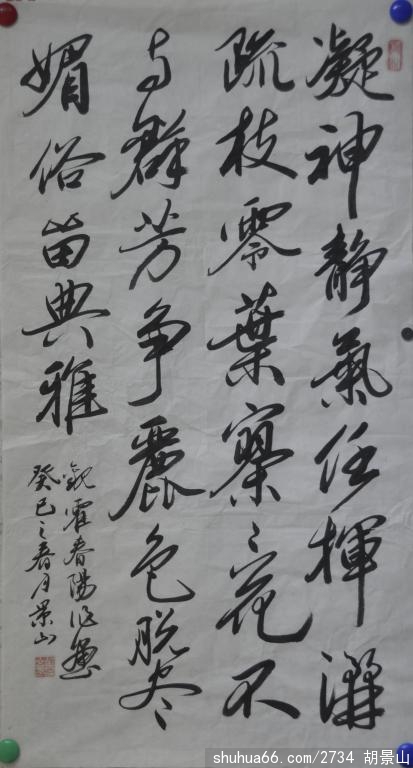 凝神靜氣任揮灑
疏枝零葉寥〻花不
与群芳争麗色脱尽
媚俗留典雅
觀霍春陽作畫
癸巳之春月景山
shuhua66.com/2734 胡景山